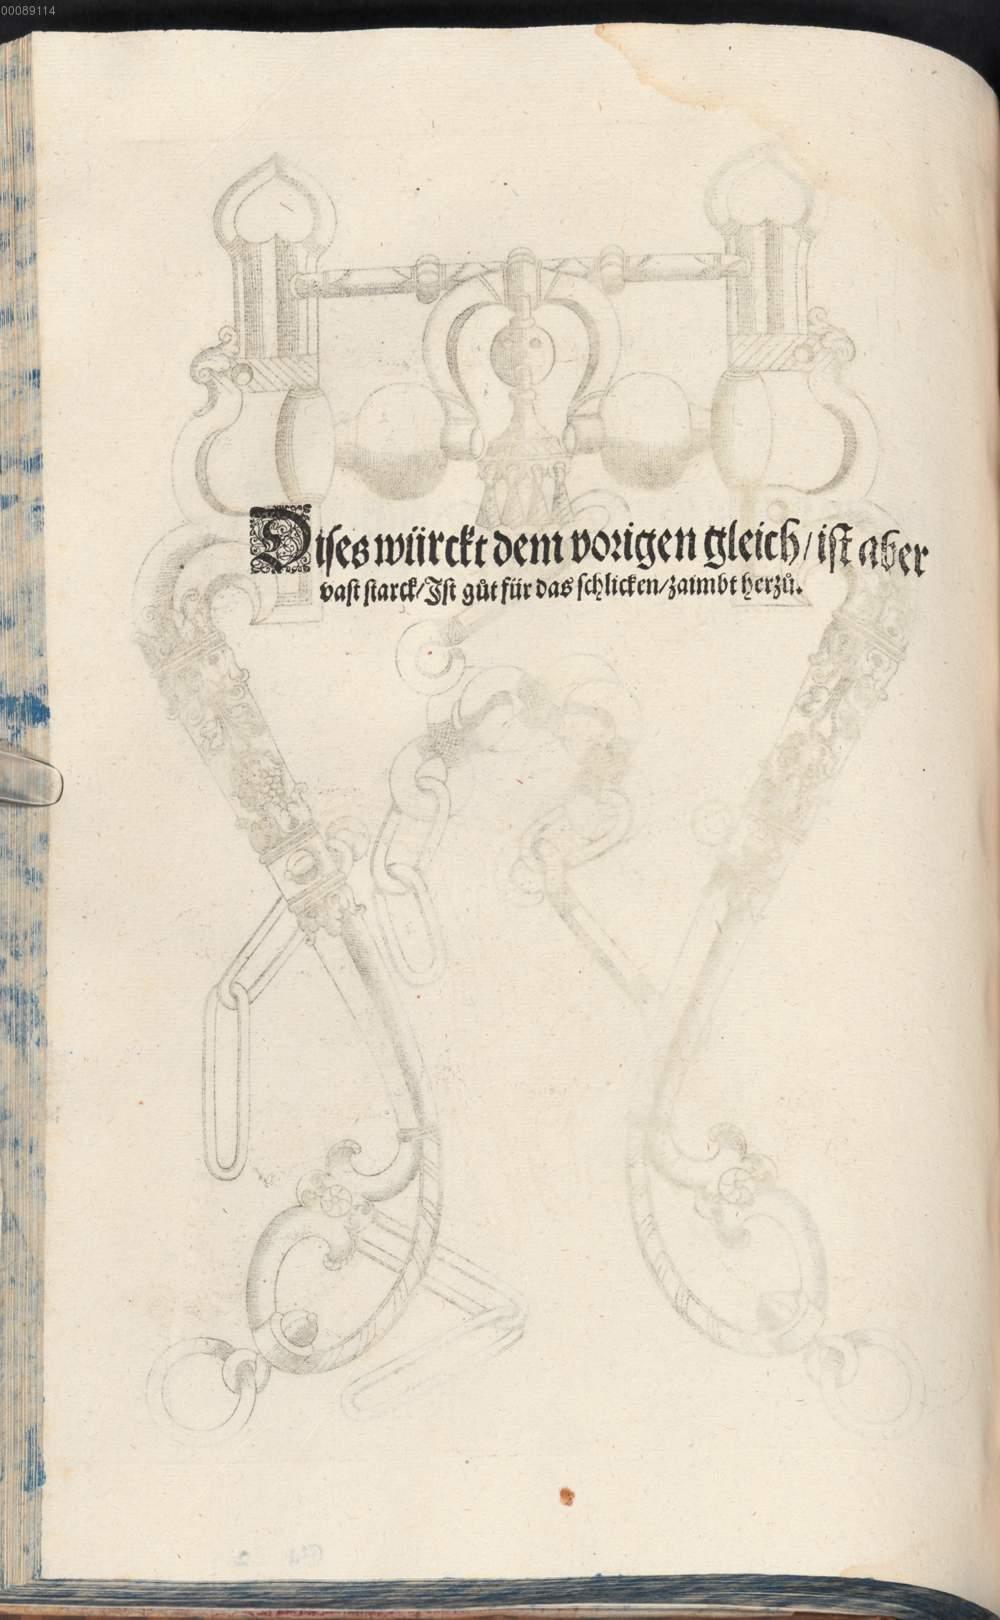 00089114
Dises würckt dem vorigen gleich / ist aber
vast starck / Ist gůt für das schlicken / zaimbt herzů.